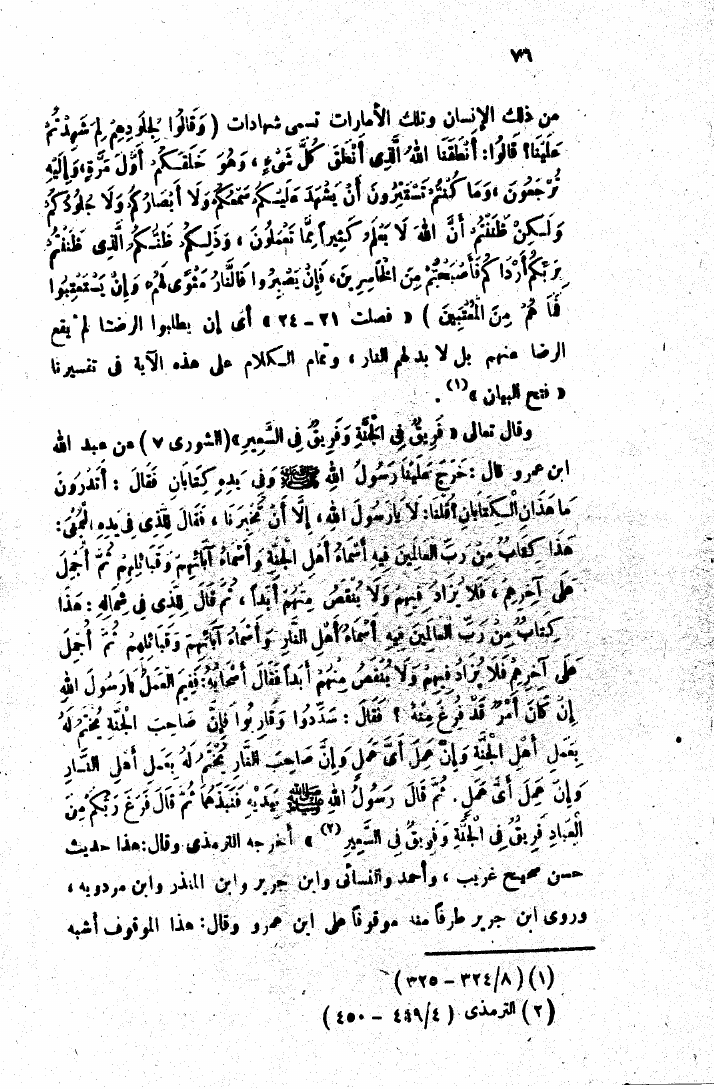 ٧٦
من ذلك الإنسان وتلك الأمارات تسمى شهادات ( وَقَالُوا لِجُلُودِهِمْ لِمَ شَهِدْتُمْ
عَلَيْنَا؟ قَالُوا: أَنْطَقَنَا اللهُ الَّذِى أَنْطَقَ كُلَّ شَىْءٍ ، وَهُوَ خَلَقَكُمْ أَوَّلَ مَرَّةٍ، وَإِلَيْهِ
تُرْجَعُونَ ، وَمَا كُنْتُمْ تَسْتَتِرُونَ أَنْ يَشْهَدَ عَلَيْكُمْ سَمْعُكُمْ وَلَا أَبْصَارُكُمْ وَلَا جُلُودُكُمْ
وَلَكِنْ ظَنَنْتُمْ أَنَّ اللهَ لَا يَعْلَمُ كَثِيراً مِمَّا تَعْمَلُونَ ، وَذَلِكُمْ ظَنُّكُمُ الَّذِى ظَنَنْتُمْ
بِرَبِّكُمْ أَرْدَاكُمْ فَأَصْبَحْتُمْ مِنَ الْخَاسِرِينَ، فَإِنْ يَصْبِرُوا فَالنَّارُ مَثْوًى لَهُمْ وَإِنْ يَسْتَعْتِبُوا
فَمَا هُمْ مِنَ الْمُعْتَبِينَ ) « فصلت ٢١ – ٢٤ » أى إن يطلبوا الرضا لم يقع
الرضا عنهم بل لا بد لهم النار ، وتمام الكلام على هذه الآية فى تفسيرنا
« فتح البيان »(١) .
وقال تعالى « فَرِيقٌ فِى الْجَنَّةِ وَفَرِيقٌ فِى السَّعِيرِ»(الشورى ٧ ) عن عبد الله
ابن عمرو قال : خَرَجَ عَلَيْنَا رَسُولُ اللهِ ﷺ وَفِى يَدِهِ كِتَابَانِ فَقَالَ : أَتَدْرُونَ
مَا هَذَانِ الْكِتَابَانِ؟ قُلْنَا: لَا يَارَسُولَ اللهِ، إِلَّا أَنْ تُخْبِرَنَا ، فَقَالَ لِلَّذِى فِى يَدِهِ الْيُمْنَى:
هَذَا كِتَابٌ مِنْ رَبِّ الْعَالَمِينَ فِيهِ أَسْمَاءُ أَهْلِ الْجَنَّةِ وَأَسْمَاءُ آبَائِهِمْ وَقَبَائِلِهِمْ ثُمَّ أُجْمِلَ
عَلَى آخِرِهِمْ ، فَلَا يُزَادُ فِيهِمْ وَلَا يُنْقَصُ مِنْهُمْ أَبَداً ، ثُمَّ قَالَ لِلَّذِى فِى شِمَالِهِ : هَذَا
كِتَابٌ مِنْ رَبِّ الْعَالَمِينَ فِيهِ أَسْمَاءُ أَهْلِ النَّارِ وَأَسْمَاءُ آبَائِهِمْ وَقَبَائِلِهِمْ ثُمَّ أُجْمِلَ
عَلَى آخِرِهِمْ فَلَا يُزَادُ فِيهِمْ وَلَا يُنْقَصُ مِنْهُمْ أَبَداً فَقَالَ أَصْحَابُهُ: فَفِيمَ الْعَمَلُ يَارَسُولَ اللهِ
إِنْ كَانَ أَمْرٌ قَدْ فُرِغَ مِنْهُ ؟ فَقَالَ : سَدِّدُوا وَقَارِبُوا فَإِنَّ صَاحِبَ الْجَنَّةِ يُخْتَمُ لَهُ
بِعَمَلِ أَهْلِ الْجَنَّةِ وَإِنْ عَمِلَ أَىَّ عَمَلٍ وَإِنَّ صَاحِبَ النَّارِ يُخْتَمُ لَهُ بِعَمَلِ أَهْلِ النَّارِ
وَإِنْ عَمِلَ أَىَّ عَمَلٍ. ثُمَّ قَالَ رَسُولُ اللهِ ﷺ بِيَدَيْهِ فَنَبَذَهُمَا ثُمَّ قَالَ فَرَغَ رَبُّكُمْ مِنَ
الْعِبَادِ فَرِيقٌ فِى الْجَنَّةِ وَفَرِيقٌ فِى السَّعِيرِ (٢) » أخرجه الترمذى وقال: هذا حديث
حسن صحيح غريب ، وأحمد والنسائى وابن جرير وابن المنذر وابن مردويه ،
وروى ابن جرير طرفاً منه موقوفاً على ابن عمرو وقال: هذا الموقوف أشبه
(١) (٨/ ٣٢٤ – ٣٢٥ )
(٢) الترمذى ( ٤/ ٤٤٩ – ٤٥٠ )